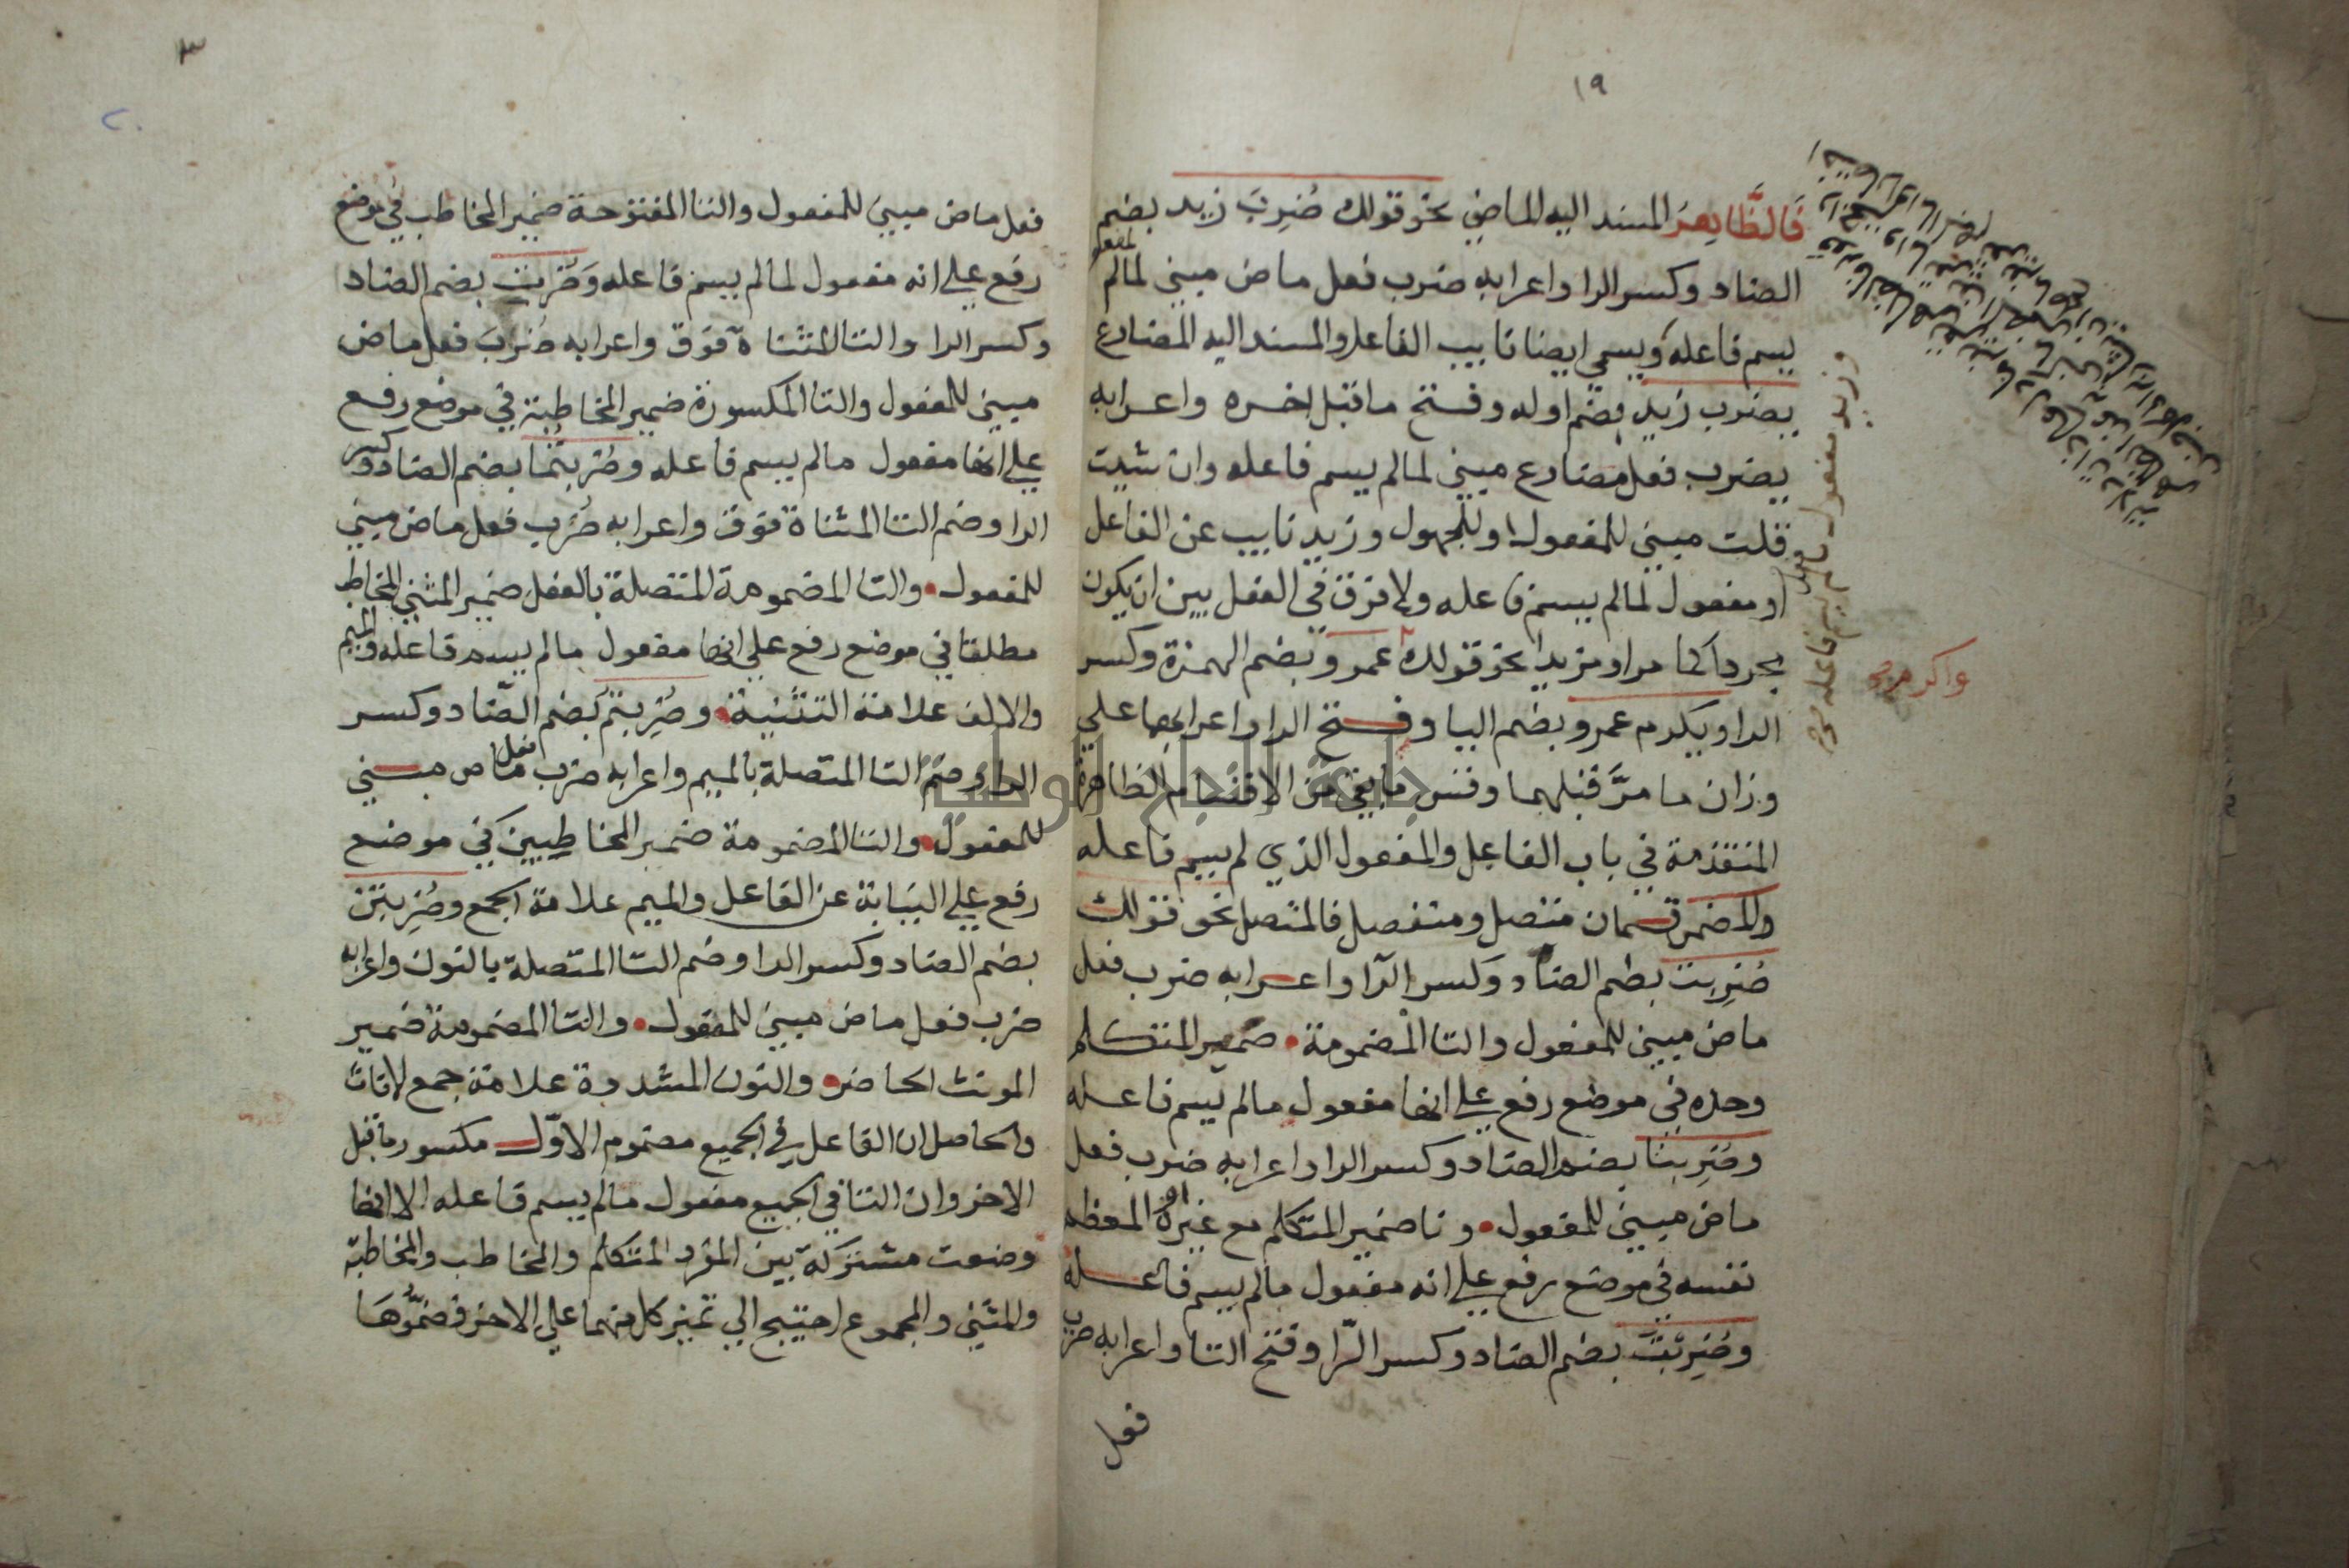 ١٩
فَالظَّاهِرُ المسند اليه الماضي نحو قولك ضُرِبَ زيد بضم
الضاد وكسر الرا واعرابه ضرب فعل ماض مبني لمالم
يسم فاعله ويسمي ايضا نايب الفاعل والمسند اليه المضارع
يضرب زيد بضم اوله وفتح ماقبل اخره واعرابه
يضرب فعل مضارع مبني لمالم يسم فاعله وان شيت
قلت مبني للمفعول او للمجهول وزيد نايب عن الفاعل
او مفعول لمالم يسم فاعله ولا فرق في الفعل بين ان يكون
مجردا كما مر او مزيدا نحو قولك عمرو بضم الهمزة وكسر
الرا ويكرم عمرو بضم اليا وفتح الرا واعرابهما علي
وزان ما مرَّ قبلهما وقس ما بقي من الاقسام الظاهرة
المتقدمة في باب الفاعل والمفعول الذي لم يسم فاعله
والمضمر قسمان متصل ومنفصل فالمتصل نحو قولك
ضُرِبت بضم الضاد وكسر الرا واعرابه ضرب فعل
ماض مبني للمفعول والتا المضمومة ضمير المتكلم
وحده في موضع رفع علي انها مفعول مالم يسم فاعله
وضُرِبنا بضم الضاد وكسر الرا واعرابه ضرب فعل
ماض مبني للمفعول ونا ضمير المتكلم مع غيره او المعظم
نفسه في موضع رفع علي انه مفعول مالم يسم فاعله
وضُرِبْتَ بضم الضاد وكسر الرّا وفتح التا واعرابه ضرب
فعل
وزيد مفعول مالم يسم فاعله
واكرم
٣
٢٠
فعل ماض مبني للمفعول والتا المفتوحة ضمير المخاطب في موضع
رفع علي انه مفعول لمالم يسم فاعله وَضُرِبتِ بضم الضاد
وكسر الرا والتا المثناة فوق واعرابه ضُرِبَ فعل ماض
مبني للمفعول والتا المكسورة ضمير المخاطبة في موضع رفع
علي انها مفعول مالم يسم فاعله وضُربتُما بضم الضاد وكسر
الرا وضم التا المثناة فوق واعرابه ضُرِب فعل ماض مبني
للمفعول والتا المضمومة المتصلة بالفعل ضمير المثني المخاطب
مطلقا في موضع رفع علي انها مفعول مالم يسم فاعله والميم
والالف علامة التثنية وضُرِبتُم بضم الضّاد وكسر
الرا وضم التا المتصلة بالميم واعرابه ضرب فعل ماض مبني
للمفعول والتا المضمومة ضمير المخاطبين في موضع
رفع علي النيابة عن الفاعل والميم علامة الجمع وضُرِبتن
بضم الضاد وكسر الرا وضم التا المتصلة بالنون واعرابه
ضرب فعل ماض مبني للمفعول والتا المضمومة ضمير
المونث الحاضر والنون المشددة علامة جمع الاناث
والحاصل ان الفاعل في الجميع مضموم الاوّل مكسور ماقبل
الاخر وان التا في الجميع مفعول مالم يسم فاعله الا انها
وضعت مشتركة بين المفرد المتكلم والمخاطب والمخاطبة
والمثني والمجموع احتيج الي تميز كل منهما علي الاخر فضمُّوهَا
جامعة النجاح الوطنية